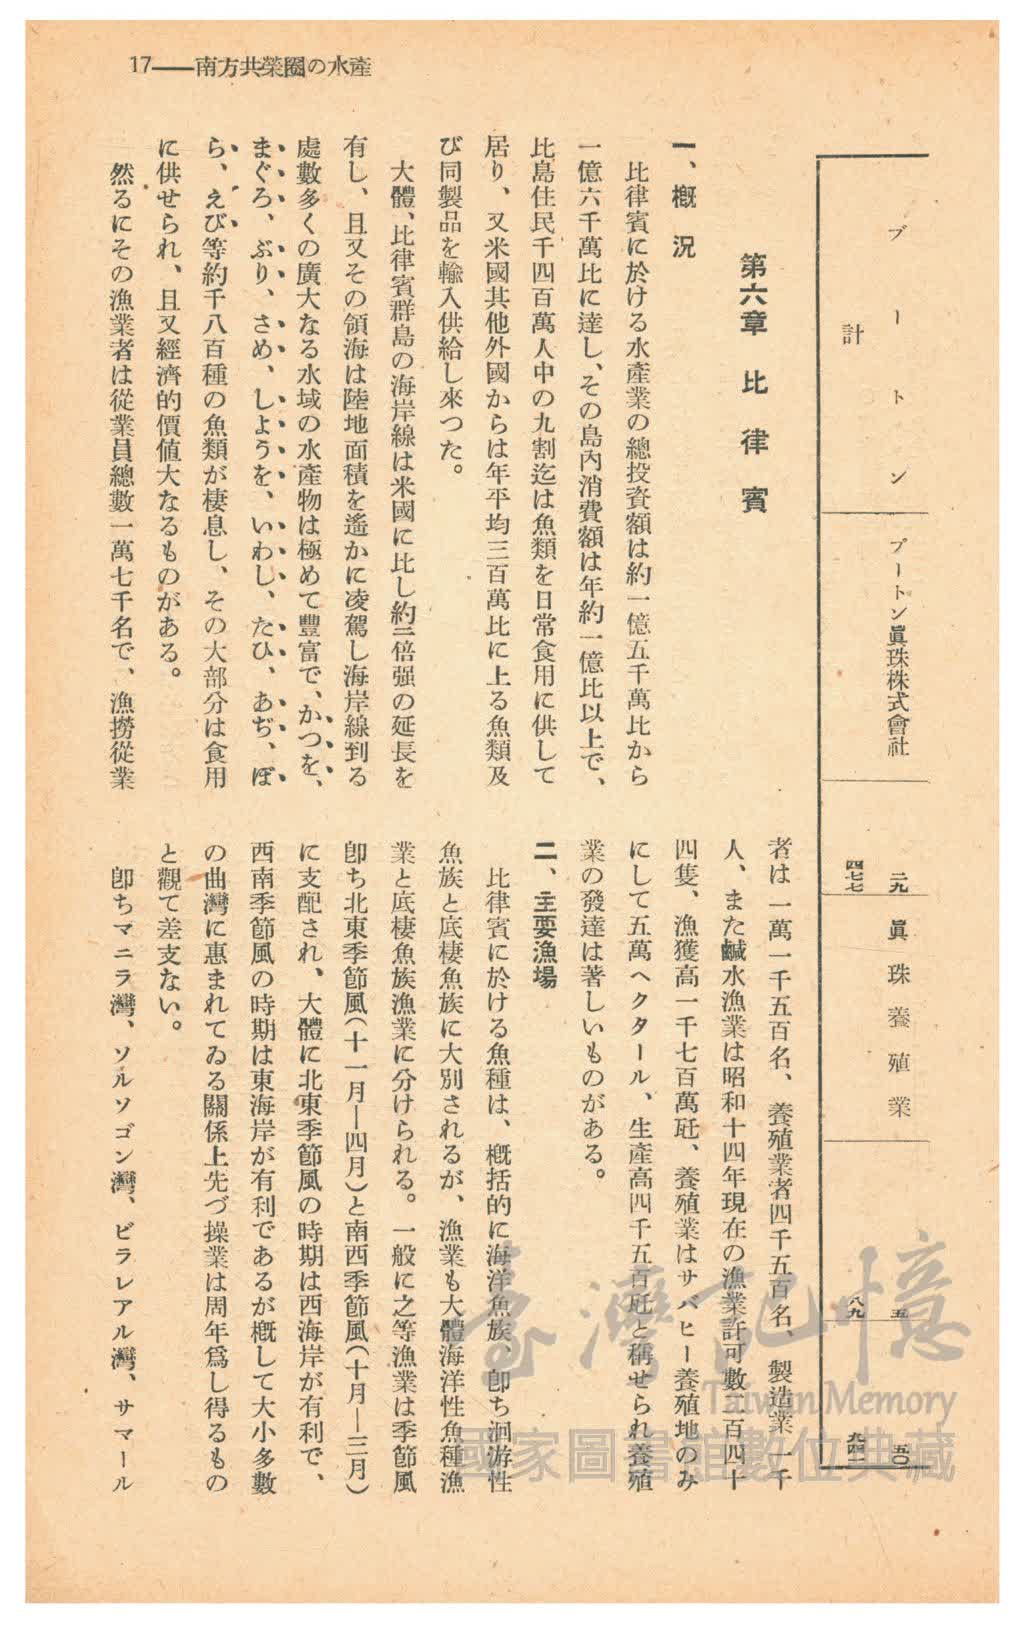 17——南方共榮圈の水產
ブートン
ブートン眞珠株式會社
二九
眞珠養殖業
五
五〇
計
四七七
八九
第六章　比律賓
一、槪況
比律賓に於ける水產業の總投資額は約一億五千萬比から
一億六千萬比に達し、その島內消費額は年約一億比以上で、
比島住民千四百萬人中の九割迄は魚類を日常食用に供して
居り、又米國其他外國からは年平均三百萬比に上る魚類及
び同製品を輸入供給し來つた。
大體、比律賓群島の海岸線は米國に比し約三倍强の延長を
有し、且又その領海は陸地面積を遙かに凌駕し海岸線到る
處數多くの廣大なる水域の水產物は極めて豐富で、かつを、
まぐろ、ぶり、さめ、しようを、いわし、たひ、あぢ、ぼ
ら、えび等約千八百種の魚類が棲息し、その大部分は食用
に供せられ、且又經濟的價値大なるものがある。
然るにその漁業者は從業員總數一萬七千名で、漁撈從業
者は一萬一千五百名、養殖業者四千五百名、製造業一千
人、また鹹水漁業は昭和十四年現在の漁業許可數二百四十
四隻、漁獲高一千七百萬瓩、養殖業はサバヒー養殖地のみ
にして五萬ヘクタール、生產高四千五百瓩と稱せられ養殖
業の發達は著しいものがある。
二、主要漁場
比律賓に於ける魚種は、槪括的に海洋魚族、卽ち洄游性
魚族と底棲魚族に大別されるが、漁業も大體海洋性魚種漁
業と底棲魚族漁業に分けられる。一般に之等漁業は季節風
卽ち北東季節風(十一月—四月)と南西季節風(十月—三月)
に支配され、大體に北東季節風の時期は西海岸が有利で、
西南季節風の時期は東海岸が有利であるが槪して大小多數
の曲灣に惠まれてゐる關係上先づ操業は周年爲し得るもの
と觀て差支ない。
卽ちマニラ灣、ソルソゴン灣、ビラレアル灣、サマール
臺灣記憶
Taiwan Memory
國家圖書館數位典藏